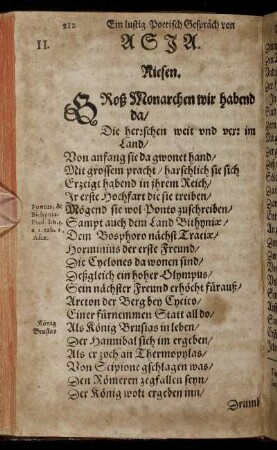 212
Ein lustig Poetisch Gespräch von
II.
ASIA.
Riesen.
GRoß Monarchen wir habend
da/
Die herrschen weit vnd verr im
Land/
Von anfang sie da gwonet hand/
Mit grossem pracht/ harschlich sie sich
Erzeigt habend in ihrem Reich/
Ir erste Hochfart die sie treiben/
Pontus, &
Mögend sie wol Ponto zuschreiben/
Bithynia.
Sampt auch dem Land Bithyniæ/
Ptol. lib. 5.
c. 1. tab. 1.
Dem Bosphoro nächst Traciæ/
Asiæ.
Jorminius der erste Freund/
Die Cyclones da wonen sind/
Deßgleich ein hoher Olympus/
Sein nächster Freund erhöcht fürauß/
Arcton der Berg bey Cycico/
Einer fürnemmen Statt all do/
König
Als König Brusias in leben/
Brusias
Der Hannibal sich im ergeben/
Als er zoch an Thermopylas/
Von Scipione gschlagen was/
Den Römeren zegfallen seyn/
Der König wolt ergeben inn/
Drumb